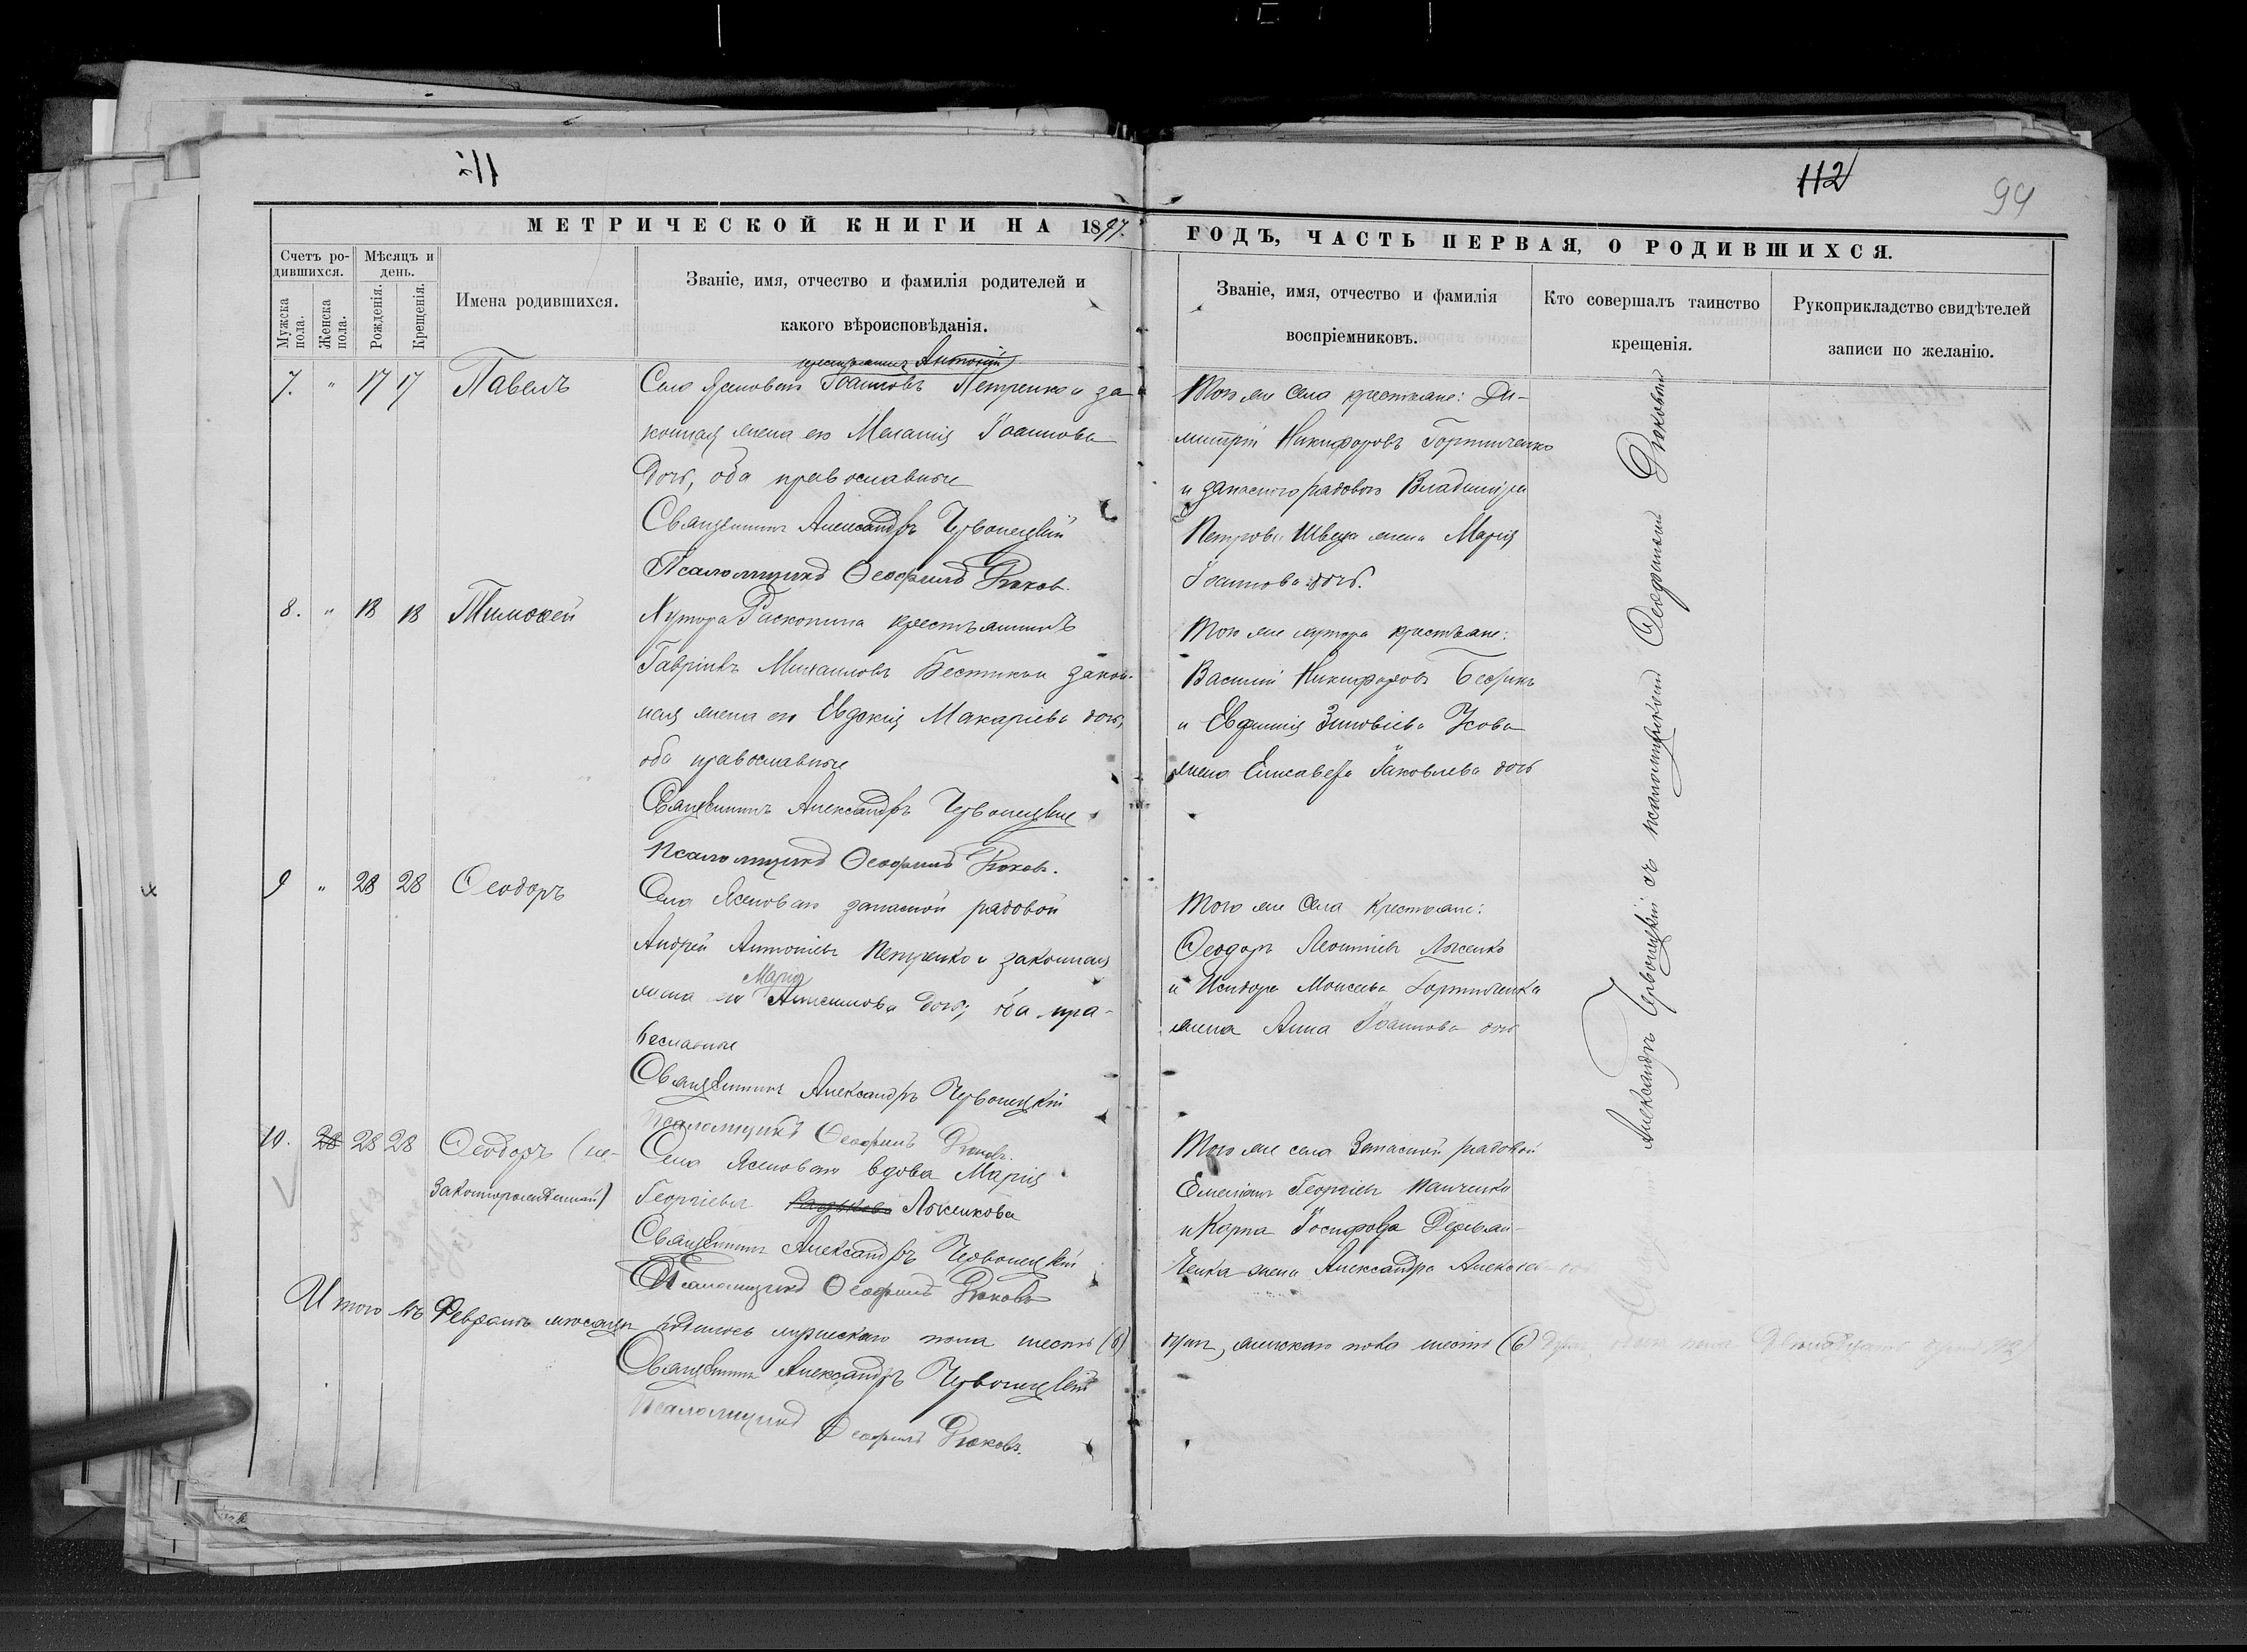 112
94
МЕТРИЧЕСКОЙ КНИГИ НА 1897.
ГОДЪ, ЧАСТЬ ПЕРВАЯ, О РОДИВШИХСЯ.
Счетъ ро-
дившихся.
Мѣсяцъ и
день.
Мужска
пола.
Женска
пола.
Рожденія.
Крещенія.
Имена родившихся.
Званіе, имя, отчество и фамилія родителей и
какого вѣроисповѣданія.
Званіе, имя, отчество и фамилія
воспріемниковъ.
Кто совершалъ таинство
крещенія.
Рукоприкладство свидѣтелей
записи по желанію.
7. " 17 17 Павелъ
крестьянинъ Антоній
Села Ясеноваго Іоанновъ Петренко и за-
конная жена его Меланія Іоаннова
дочь, оба православные
Священникъ Александръ Червонецкій
Псаломщикъ Ѳеофилъ Рюковъ.
Того же села крестьяне: Ди-
митрій Никифоровъ Гортинченко
и запаснаго рядового Владиміра
Петрова Швеца жена Марія
Іоаннова дочь.
8. " 18 18 Тимоѳей
Хутора Раскопина крестьянинъ
Гавріилъ Михаиловъ и закон-
ная жена его Евдокія Макаріева дочь,
оба православные
Священникъ Александръ Червонецкій
Псаломщикъ Ѳеофилъ Рюковъ.
Того же хутора крестьяне:
Василій Никифоровъ
и Зиновіева Усова
жена Елисавета Іаковлева дочь
9 " 28 28 Ѳеодоръ
Села Ясеноваго запасной рядовой
Андрей Антоніевъ Петренко и законная
Марія
жена его Анисимова дочь, оба пра-
вославные
Священникъ Александръ Червонецкій
Псаломщикъ Ѳеофилъ Рюковъ.
Того же села крестьяне:
Ѳеодоръ Леонтіевъ
и Исидора Моисеева Гортинченка
жена Анна Іоаннова дочь
10. 28 28 28 Ѳеодоръ (не-
законнорожденный)
Села Ясеноваго вдова Марія
Георгіевна
Священникъ Александръ Червонецкій
Псаломщикъ Ѳеофилъ Рюковъ
Того же села запасной рядовой
Емеліанъ Георгіевъ Панченко
и Карпа Іосифова Деревян-
ченка жена Александра
Александръ Червонецкій съ псаломщикомъ Ѳеофиломъ Рюковымъ
Итого въ Февралѣ мѣсяцѣ родилось мужескаго пола шесть (6)
душъ, женскаго пола шесть (6) душъ, обоего пола двѣнадцать душъ (12)
Священникъ Александръ Червонецкій
Псаломщикъ Ѳеофилъ Рюковъ.